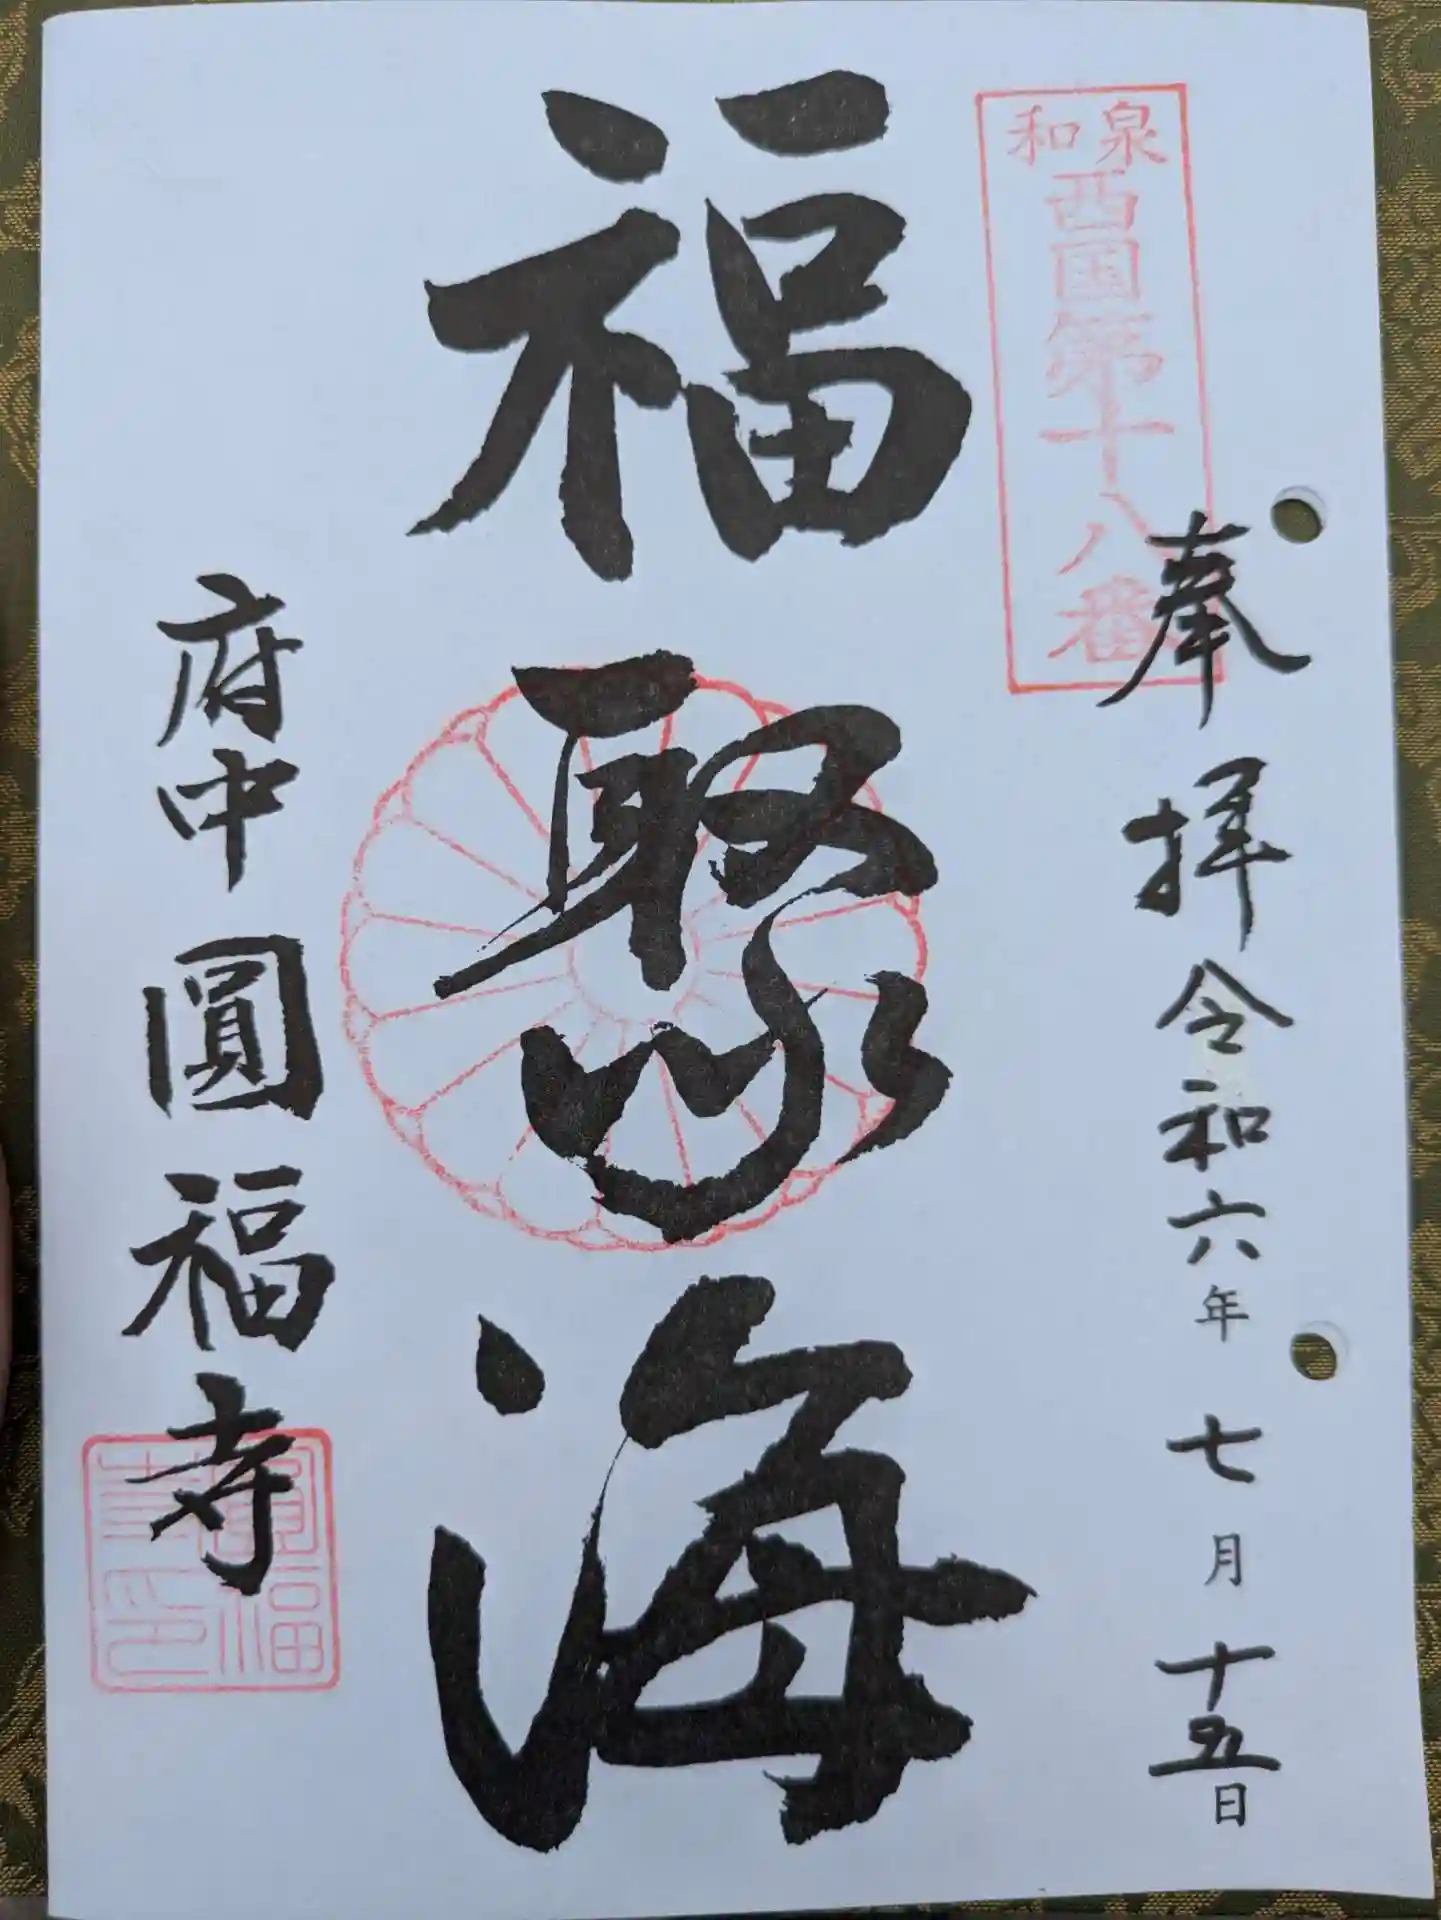 和泉
西国第十八番
奉拝令和六年七月十五日
福聚海
府中圓福寺
圓福
寺印